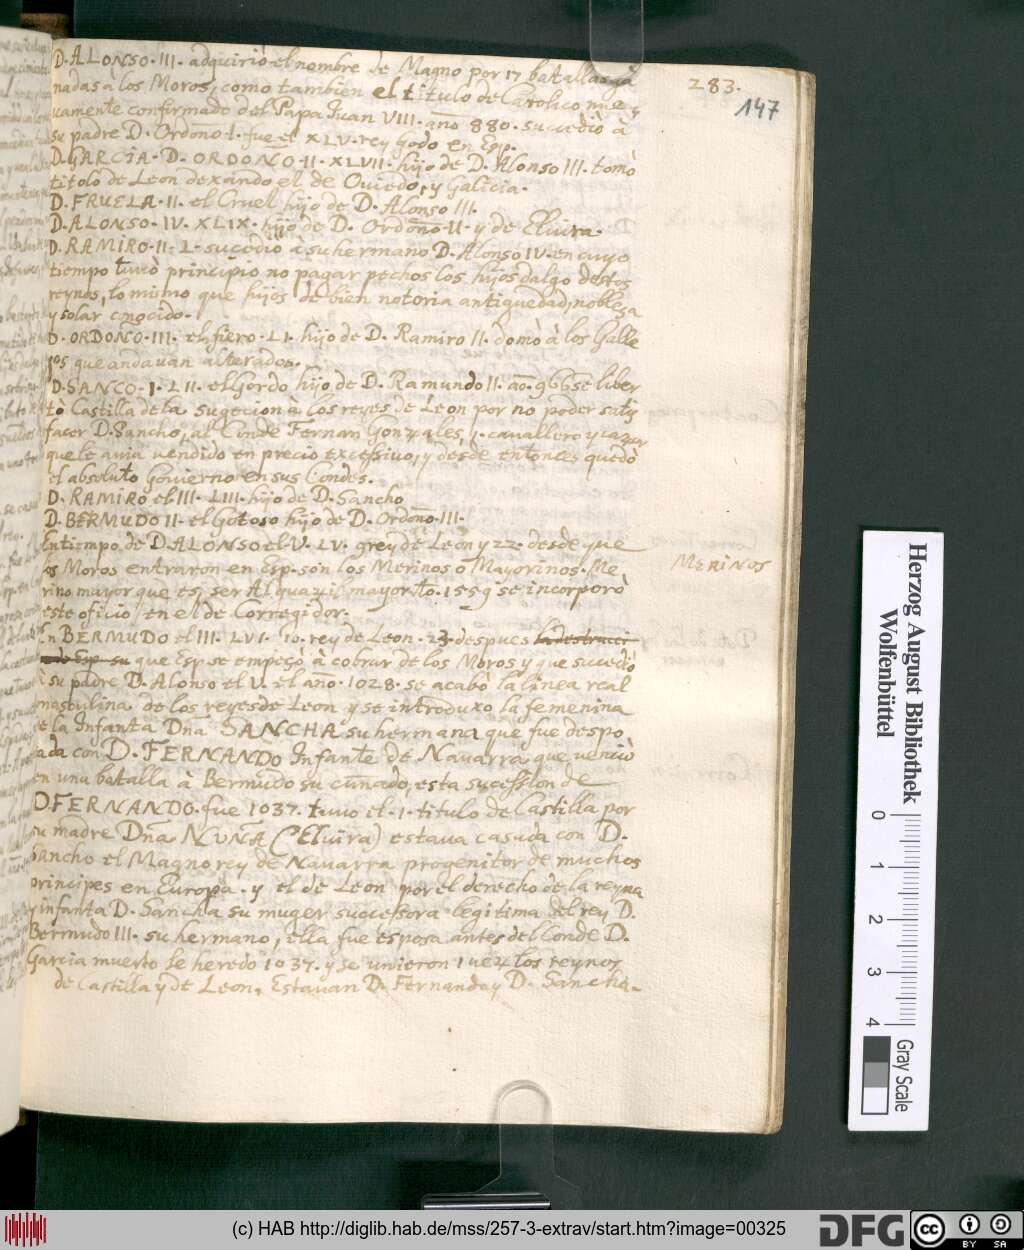 283.
147
D. ALONSO. III. adquirio el nombre de Magno por 17 batallas ga
nadas a los Moros, como tambien el titulo de Catolico nue
uamente confirmado del Papa Iuan VIII. año 880. sucediò à
su padre D. Ordoño I. fue el XLV. rey godo en Esp.
D. GARCIA. D. ORDOÑO. II. XLVII. hijo de D. Alonso III. tomò
titolo de Leon dexando el de Ouiedo, y Galicia.
D. FRUELA. II. el Cruel hijo de D. Alonso III.
D. ALONSO. IV. XLIX. hijo de D. Ordoño II. y de Eluira.
D. RAMIRO. II. L. sucediò à su hermano D. Alonso IV. en cuyo
tiempo tuuò principio no pagar pechos los hijos dalgo destos
reynos, lo mismo que hijos de bien notoria antiguedad, nobleza
y solar conocido.
D. ORDOÑO. III. el fiero. LI. hijo de D. Ramiro II. domò à los Galle
gos que andauan alterados.
D. SANCO. I. LII. el Gordo hijo de D. Ramundo II. ao. 966 se liber
tò Castilla de la sugecion à los reyes de Leon por no poder satis
facer D. Sancho, al Conde Fernan Gonzales, 1. cauallero y 1 azor
que le auia vendido en precio excessiuo, y desde entonces quedò
el absoluto Gouierno en sus Condes.
D. RAMIRO el III. LIII. hijo de D. Sancho
D. BERMUDO II. el Gotoso hijo de D. Ordoño. III.
En tiempo de D ALONSO el V. LV. 9 rey de Leon y 22. desde que
los Moros entraron en Esp. son los Merinos o Mayorinos. Me
rino mayor que es, ser Alguazil mayor to. 1559 se incorporò
este oficio en el de Corregidor.
MERINOS
En BERMUDO el III. LVI. 10. rey de Leon. 23. despues la destruci
Esp. su que Esp. se empeçò à cobrar de los Moros y que sucediò
à su padre D. Alonso el V. el año. 1028. se acabò la linea real
masculina de los reyes de Leon y se introduxo la femenina
de la Infanta Dña SANCHA su hermana que fue despo
sada con D. FERNANDO Infante de Nauarra que venciò
en una batalla à Bermudo su cuñado, esta sucession de
D FERNANDO. fue 1037. tuuo el. 1. titulo de Castilla por
su madre Dña NUÑA (Eluira) estaua casada con D.
Sancho el Magno rey de Nauarra progenitor de muchos
principes en Europa. y el de Leon por el derecho de la reyna
y infanta D. Sancha su muger sucessora legitima del rey D.
Bermudo III. su hermano, ella fue esposa antes del Conde D.
Garcia muerto le heredo 1037. y se unieron los reynos
de Castilla y de Leon. Estauan D. Fernando y D. Sancha.
Herzog August Bibliothek
Wolfenbüttel
0 1 2 3 4
Gray Scale
(c) HAB http://diglib.hab.de/mss/257-3-extrav/start.htm?image=00325
DFG
cc BY SA